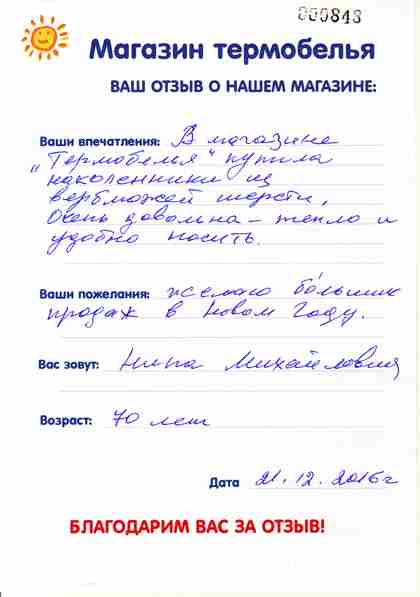 000843
Магазин термобелья
ВАШ ОТЗЫВ О НАШЕМ МАГАЗИНЕ:
Ваши впечатления: В магазине
"Термобелья" купила
наколенники из
верблюжей шерсти,
Очень довольна – тепло и
удобно носить.
Ваши пожелания: желаю больших
продаж в Новом Году.
Вас зовут: Нина Михайловна
Возраст: 70 лет
Дата 21.12.2016г
БЛАГОДАРИМ ВАС ЗА ОТЗЫВ!